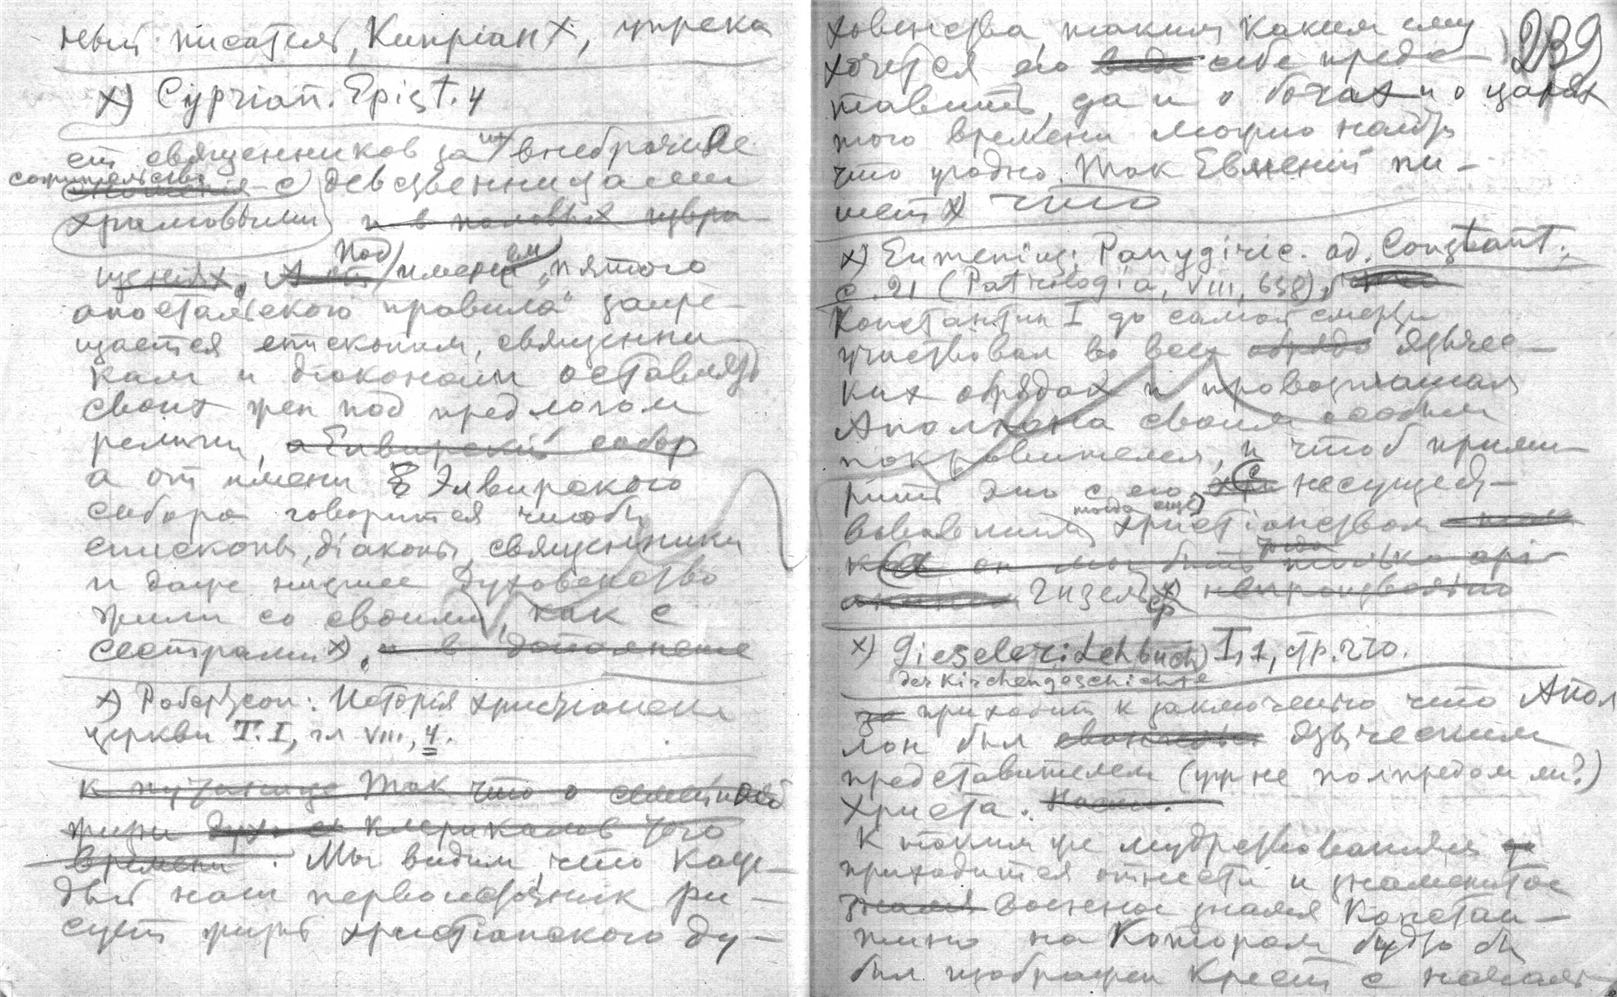 ный писатель, Кипріан х, упрека
х) Cyprian. Epist. 4
ет священников за их внебрачное
сожительство с девственницами
храмовыми и в половых извра
щениях. Под именем „пятого
апостольского правила" запре-
щается епископам, священни
кам и діаконам оставлять
своих жен под предлогом
религии, а Елвирскій собор
а от имени Элвирского
собора говорится чтобы
епископы, діаконы, священники
и даже низшее духовенство
жили со своими, как с
сестрами х). а в дополнение
х) Робертсон: Исторія христианской
церкви Т. I, гл VIII, 4.
к путанице Так что о семейной
жизни клерикалов того
времени. Мы видим, что каж-
дый наш первоисточник ри-
сует жизнь христіанского ду-
239
ховенства, таким каким ему
хочется его себе предс
тавить, да и о богах и о царях
того времени можно найти
что угодно. Так Евмений пи-
шет х) что
х) Eumenius: Panygiric. ad. Constant.
c. 21 (Patrologia, VIII, 638),
Константин I до самой смерти
участвовал во всех обрядах язычес-
ких обрядах и провозглашал
Аполлона своим особым
покровителем, и чтоб прими
рить это с его несущест-
вовавшим тогда еще христіанством
Гизелер х) непроизвольно
х) Gieseler: Lehrbuch I, 1, стр. 270.
der Kirchengeschichte
приходит к заключенію что Апол
лон был языческим
представителем (уж не полпредом ли?)
Христа.
К таким же мудрствованиям
приходится отнести и знаменитое
знамя военное знамя Констан-
тина на котором будто бы
был изображен крест с началь